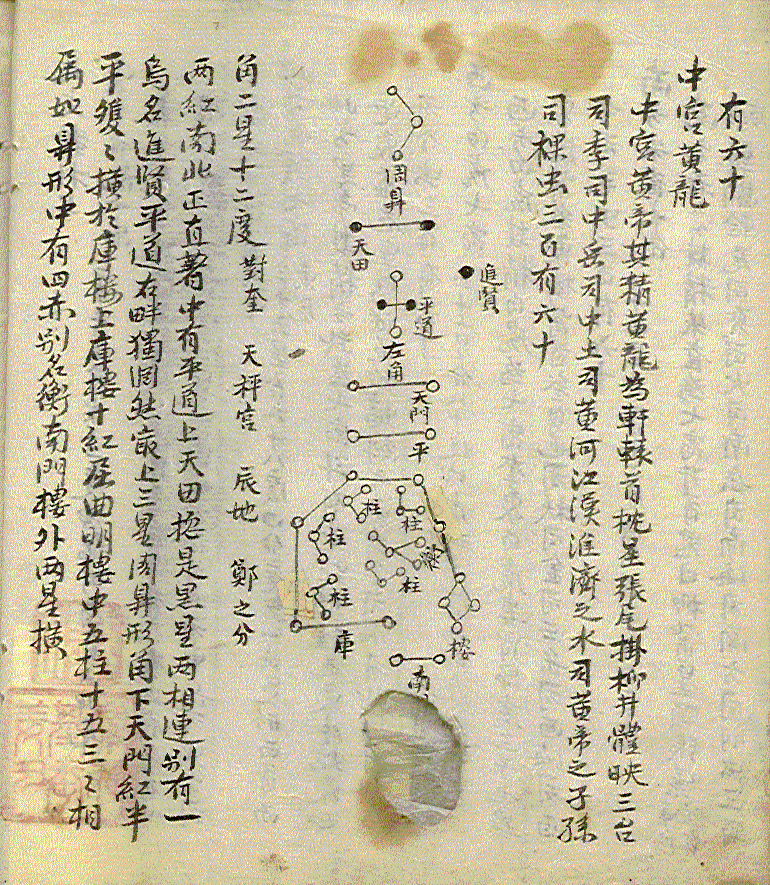 有六十
中宮黃龍
中宮黃帝其精黃龍為軒轅首枕星張尾掛柳井體映三台
司季司中岳司中土司黃河江漢淮濟之水司黃帝之子孫
司倮虫三百有六十
周鼎
天田
進賢
平道
左角
天門
平
柱
柱
柱
柱
柱
衡
樓
庫
南
角二星十二度 對奎 天秤宮 辰地 鄭之分
兩紅南北正直著中有平道上天田揔是黑星兩相連別有一
烏名進賢平道右畔獨淵然最上三星周鼎形角下天門紅半
平雙〻橫於庫樓上庫樓十紅屈曲明樓中五柱十五三〻相
属如鼎形中有四赤別名衡南門樓外兩星橫